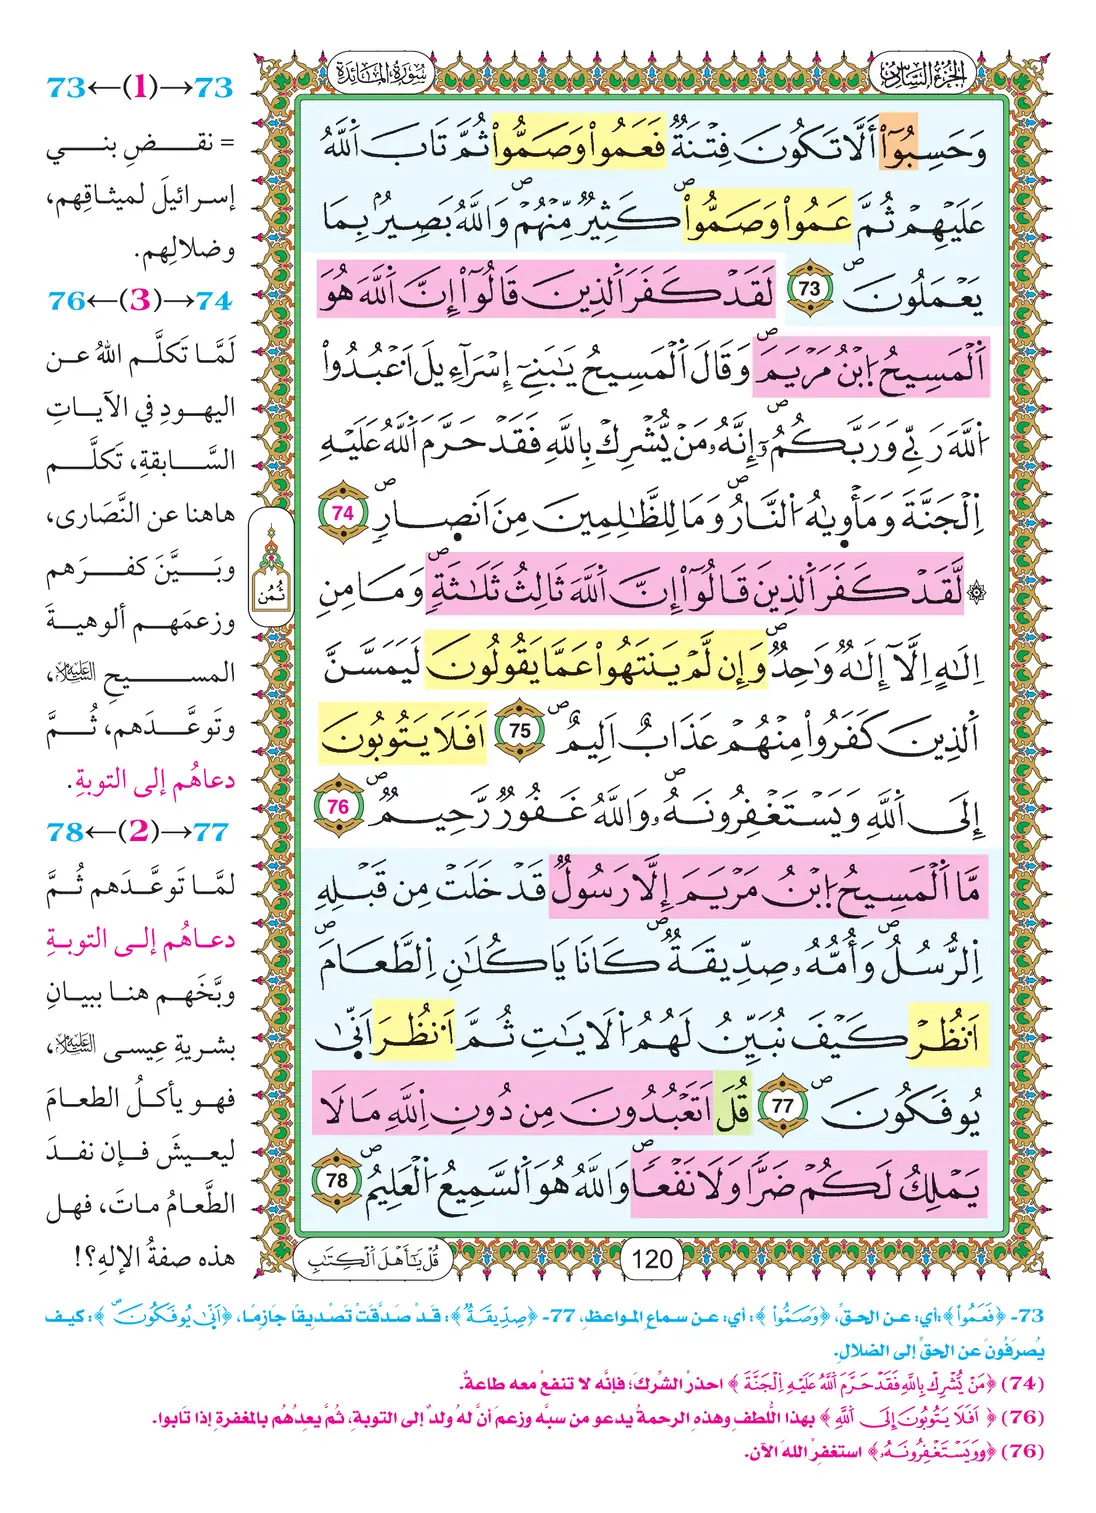 الجزء السادس
سورة المائدة
وَحَسِبُوٓاْ أَلَّا تَكُونَ فِتْنَةٌ فَعَمُواْ وَصَمُّواْ ثُمَّ تَابَ اَ۬للَّهُ
عَلَيْهِمْ ثُمَّ عَمُواْ وَصَمُّواْ كَثِيرٌ مِّنْهُمْ وَاللَّهُ بَصِيرُۢ بِمَا
يَعْمَلُونَ 73 لَقَدْ كَفَرَ اَ۬لذِينَ قَالُوٓاْ إِنَّ اَ۬للَّهَ هُوَ
اَ۬لْمَسِيحُ اُ۪بْنُ مَرْيَمَ وَقَالَ اَ۬لْمَسِيحُ يَٰبَنِےٓ إِسْرَآءِيلَ اَ۟عْبُدُواْ
اُ۬للَّهَ رَبِّے وَرَبَّكُمُۥٓ إِنَّهُۥ مَنْ يُّشْرِكْ بِاللَّهِ فَقَدْ حَرَّمَ اَ۬للَّهُ عَلَيْهِ
اِ۬لْجَنَّةَ وَمَأْو۪يٰهُ اُ۬لنَّارُ وَمَا لِلظَّٰلِمِينَ مِنَ اَنصارٖ 74
ثمن
لَّقَدْ كَفَرَ اَ۬لذِينَ قَالُوٓاْ إِنَّ اَ۬للَّهَ ثَالِثُ ثَلَٰثَةٖ وَمَا مِنِ
اِلَٰهٍ اِلَّآ إِلَٰهٌ وَٰحِدٌ وَإِن لَّمْ يَنتَهُواْ عَمَّا يَقُولُونَ لَيَمَسَّنَّ
اَ۬لذِينَ كَفَرُواْ مِنْهُمْ عَذَابٌ اَلِيمٌ 75 اَفَلَا يَتُوبُونَ
إِلَى اَ۬للَّهِ وَيَسْتَغْفِرُونَهُۥ وَاللَّهُ غَفُورٌ رَّحِيمٌ 76
مَّا اَ۬لْمَسِيحُ اُ۪بْنُ مَرْيَمَ إِلَّا رَسُولٌ قَدْ خَلَتْ مِن قَبْلِهِ
اِ۬لرُّسُلُ وَأُمُّهُۥ صِدِّيقَةٌ كَانَا يَاكُلَٰنِ اِ۬لطَّعَامَ
اَ۟نظُرْ كَيْفَ نُبَيِّنُ لَهُمُ اُ۬لَايَٰتِ ثُمَّ اَ۟نظُرَ اَنّ۪يٰ
يُوفَكُونَ 77 قُلَ اَتَعْبُدُونَ مِن دُونِ اِ۬للَّهِ مَا لَا
يَمْلِكُ لَكُمْ ضَرّاٗ وَلَا نَفْعاٗ وَاللَّهُ هُوَ اَ۬لسَّمِيعُ اُ۬لْعَلِيمُ 78
قُلْ يَٰٓأَهْلَ اَ۬لْكِتَٰبِ
120
73←(1)→73
= نقضِ بني
إسرائيلَ لميثاقِهم،
وضلالِهم.
76←(3)→74
لَمَّا تَكلَّم اللهُ عن
اليهودِ في الآياتِ
السَّابقةِ، تَكلَّم
هاهنا عن النَّصَارى،
وبَيَّنَ كفرَهم
وزعمَهم ألوهيةَ
المسيحِ عليه السلام،
وتَوعَّدَهم، ثُمَّ
دعاهُم إلى التوبةِ.
78←(2)→77
لمَّا تَوعَّدَهم ثُمَّ
دعاهُم إلى التوبةِ
وبَّخَهم هنا ببيانِ
بشريةِ عِيسى عليه السلام،
فهو يأكلُ الطعامَ
ليعيشَ فإن نفدَ
الطَّعامُ ماتَ، فهل
هذه صفةُ الإلهِ؟!
73- ﴿فَعَمُواْ﴾: أي: عن الحقِّ، ﴿وَصَمُّواْ﴾: أي: عن سماعِ المواعظِ، 77- ﴿صِدِّيقَةٌ﴾: قد صدَّقَتْ تَصْدِيقًا جَازِمًا، ﴿أَنّ۪يٰ يُوفَكُونَ﴾: كيف
يُصرَفُونَ عن الحقِّ إلى الضلالِ.
(74) ﴿مَنْ يُّشْرِكْ بِاللَّهِ فَقَدْ حَرَّمَ اَ۬للَّهُ عَلَيْهِ اِ۬لْجَنَّةَ﴾ احذرْ الشِّركَ؛ فإنَّه لا تنفعُ معه طاعةٌ.
(76) ﴿اَفَلَا يَتُوبُونَ إِلَى اَ۬للَّهِ﴾ بهذا اللُّطفِ وهذه الرحمةُ يدعو من سبَّه وزعمَ أنَّ لهُ ولدٌ إلى التوبةِ، ثُمَّ يعِدُهُم بالمغفرةِ إذا تَابوا.
(76) ﴿وَيَسْتَغْفِرُونَهُۥ﴾ استغفرْ اللهَ الآن.